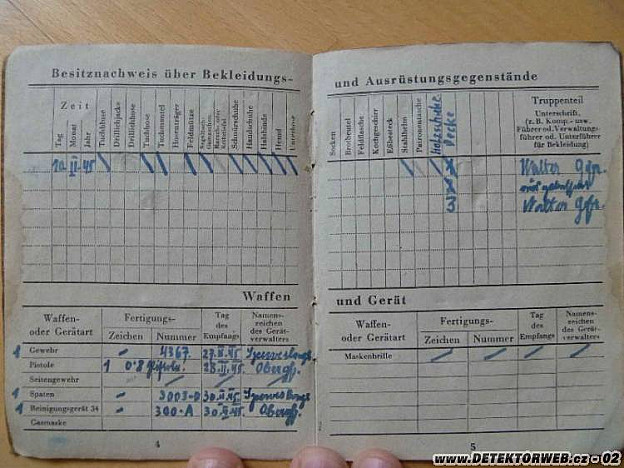 Besitznachweis über Bekleidungs-
Zeit
Tag
Monat
Jahr
Tuchbluse
Drillichjacke
Drillichhose
Tuchhose
Tuchmantel
Hosenträger
Feldmütze
Schnürschuhe
Handschuhe
Halsbinde
Hemd
Unterhose
20. II. 45
Waffen
Waffen- oder Gerätart
Fertigungs-
Zeichen
Nummer
Tag des Empfangs
Namenszeichen des Gerätverwalters
1 Gewehr - 4367. 27. II. 45.
Pistole 1 08 28. II. 45.
Seitengewehr
1 Spaten - 3003-D 30. II. 45.
1 Reinigungsgerät 34 - 300-A 30. 45.
Gasmaske
4
und Ausrüstungsgegenstände
Socken
Brotbeutel
Feldflasche
Kochgeschirr
Eßbesteck
Stahlhelm
Patronentasche
Decke
Truppenteil
Unterschrift
(z. B. Komp.- usw.
Führer od. Verwaltungs-
führer od. Unterführer
für Bekleidung)
Walter Gefr.
Walter Gefr.
und Gerät
Waffen- oder Gerätart
Fertigungs-
Zeichen
Nummer
Tag des Empfangs
Namenszeichen des Gerätverwalters
Maskenbrille
5
www.DETEKTORWEB.cz - 02